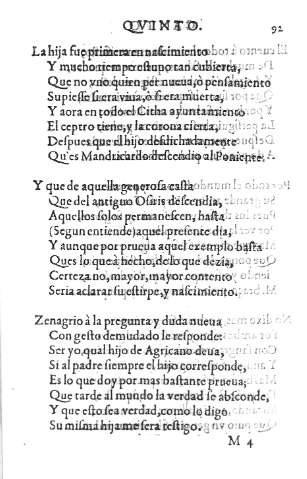 QVINTO. 92
La hija fue primera en nascimiento
Y mucho tiempo estuuo tan cubierta,
Que no vuo quien por nueua, ò pensamiento
Supiesse si era viua, ò fuera muerta,
Y aora en todo el Citha ayuntamiento
El ceptro tiene, y la corona cierta,
Despues que el hijo desdichadamente
Qu'es Mandricardo descendio al Poniente.
Y que de aquella generosa casta
Que del antiguo Osiris descendia,
Aquellos solos permanescen, hasta
(Segun entiende) aquel presente dia,
Y aunque por prueua aquel exemplo basta
Ques lo que à hecho, de lo que dezia,
Certeza no, mayor, mayor contento
Seria aclarar su estirpe, y nascimiento.
Zenagrio à la pregunta y duda nueua
Con gesto demudado le responde:
Ser yo, qual hijo de Agricano deua,
Si al padre siempre el hijo corresponde,
Es lo que doy por mas bastante prueua;
Que tarde al mundo la verdad se absconde,
Y que esto sea verdad, como lo digo
Su misma hija me sera testigo.
M 4